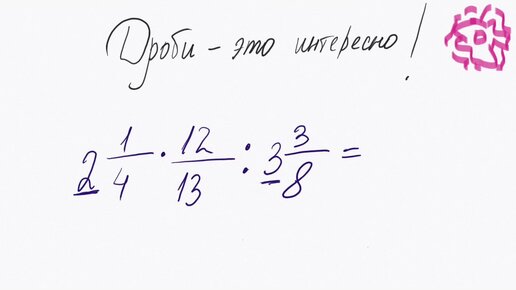 Дроби - это интересно!
2 1/4 · 12/13 : 3 3/8 =